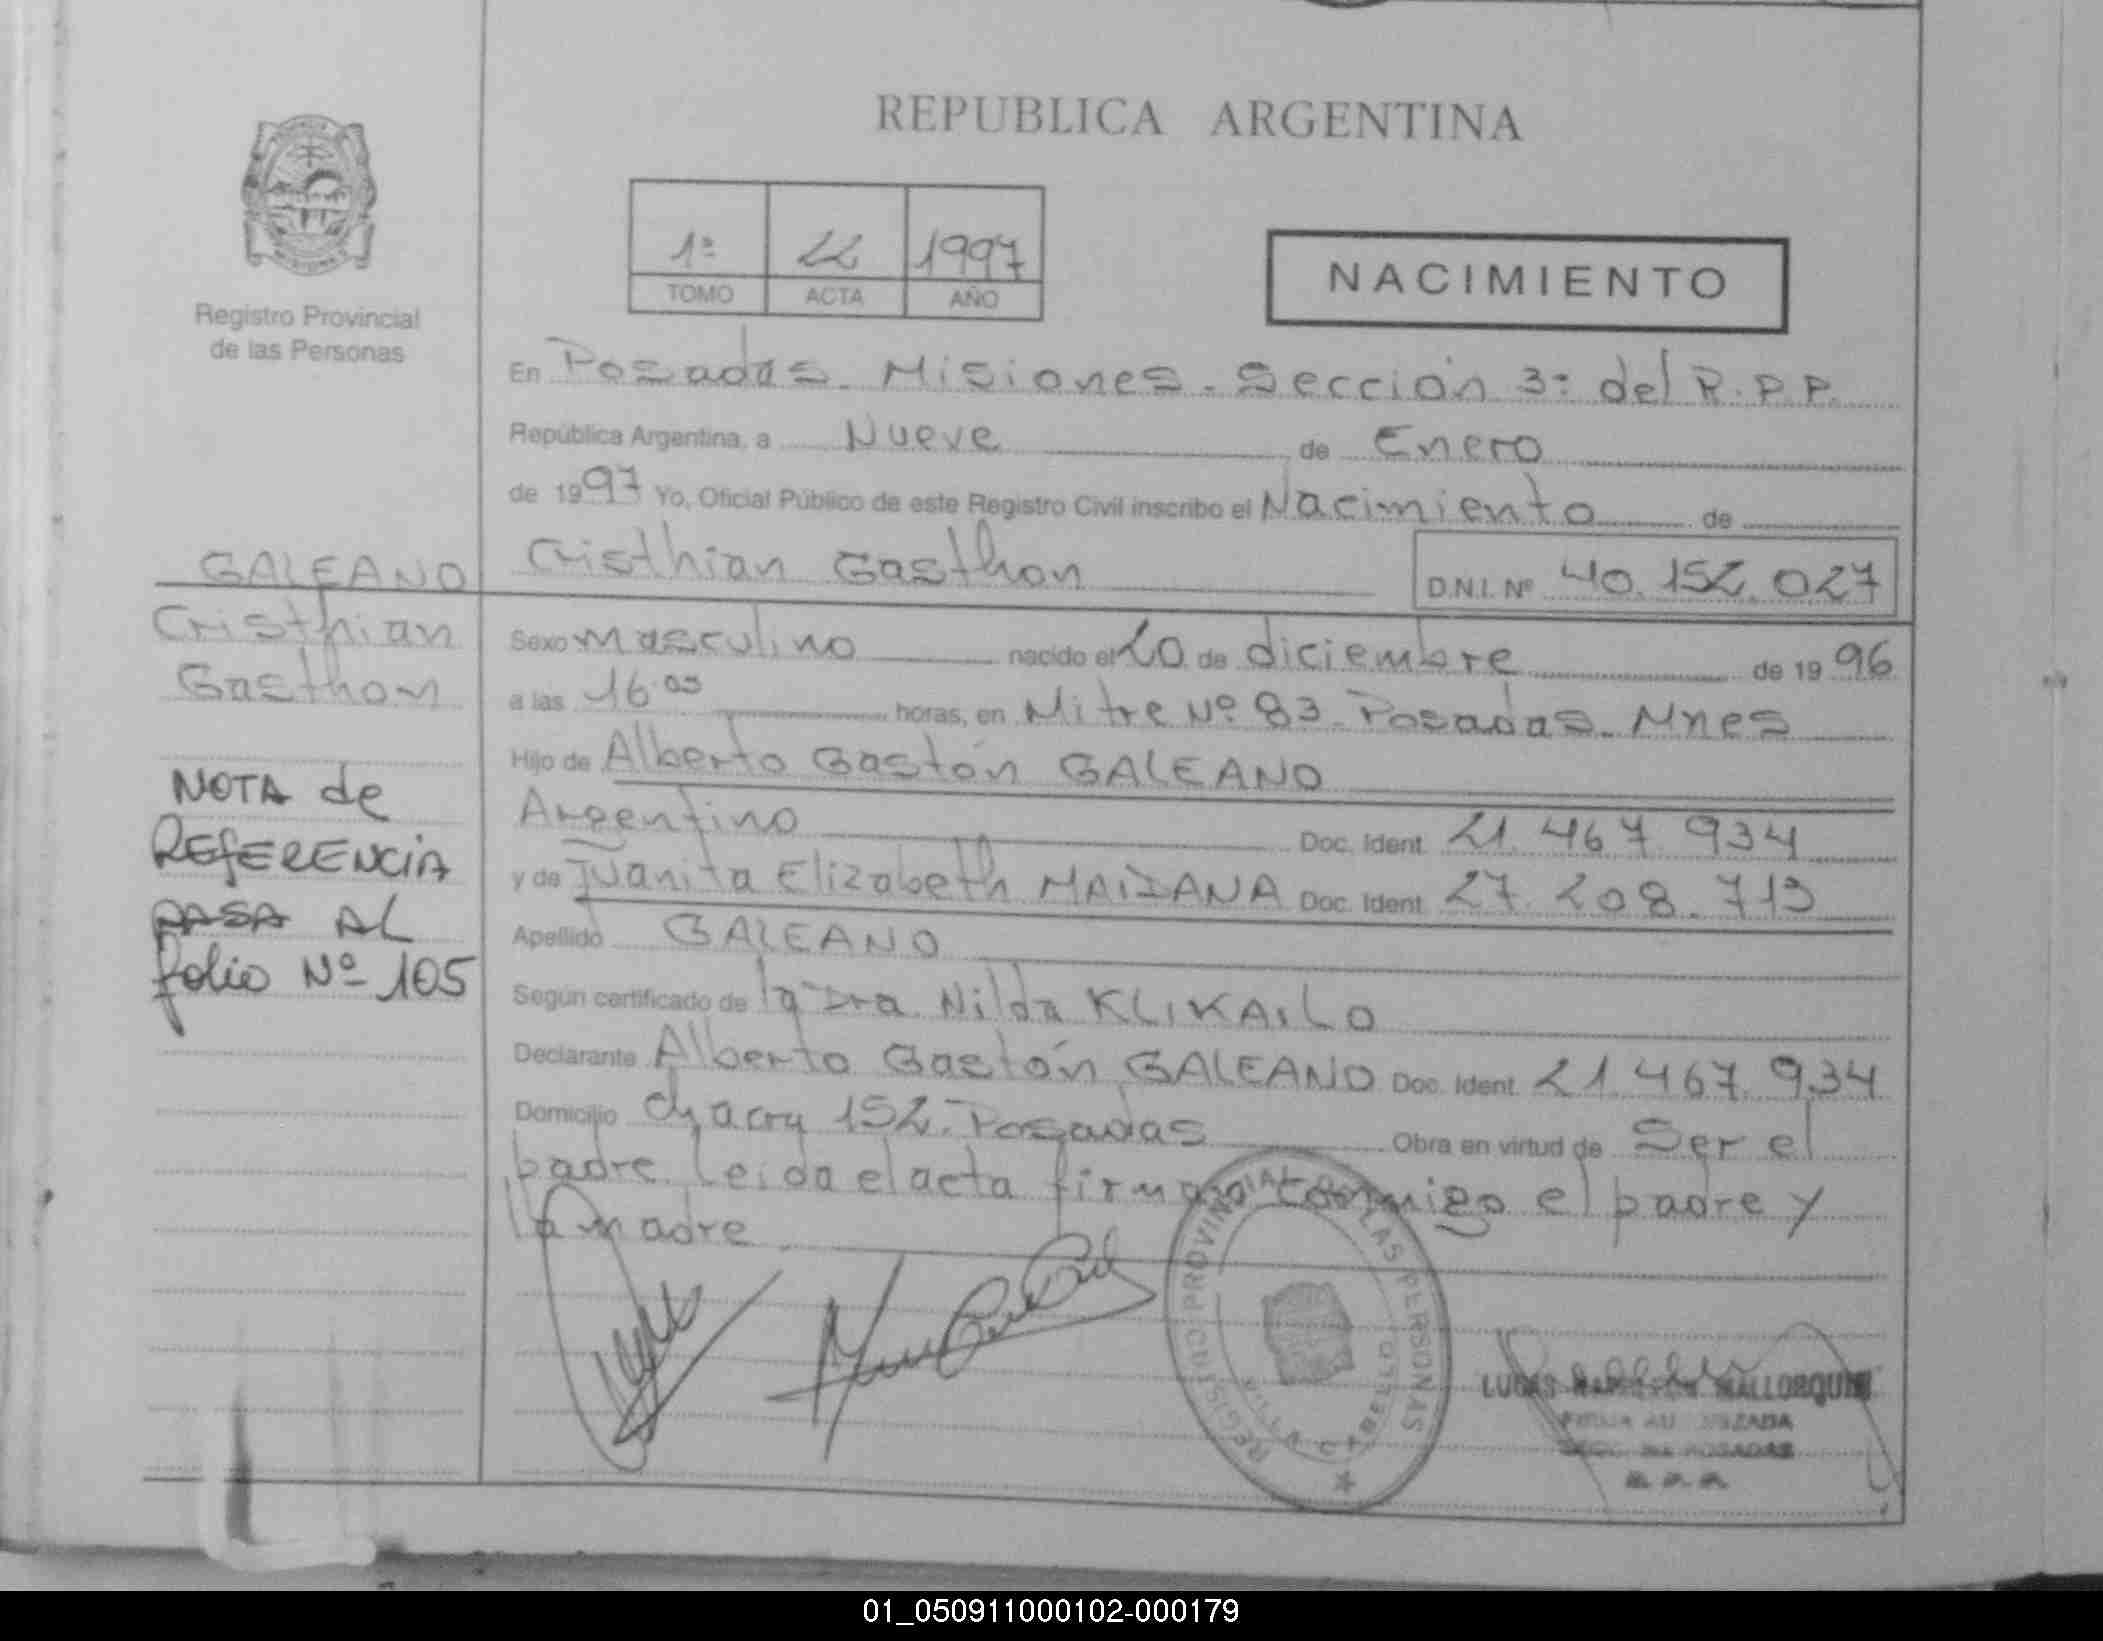 REPUBLICA ARGENTINA
1º 22 1997
TOMO ACTA AÑO
NACIMIENTO
Registro Provincial
de las Personas
En Posadas. Misiones. Sección 3: del R.P.P.
República Argentina, a Nueve de Enero
de 1997 Yo, Oficial Público de este Registro Civil inscribo el Nacimiento de
GALEANO Cristhian Gasthon D.N.I. Nº 40.152.027
Cristhian
Gasthon
Sexo masculino nacido el 20 de diciembre de 1996
a las 16.05 horas, en Mitre Nº 83 Posadas. Mnes
Hijo de Alberto Gastón GALEANO
Argentino Doc. Ident. 21.467.934
y de Juanita Elizabeth MAIDANA Doc. Ident. 27.208.719
Apellido GALEANO
NOTA de
REFERENCIA
PASA AL
folio Nº 105
Según certificado de la Dra Nilda KLIKAILO
Declarante Alberto Gastón GALEANO Doc. Ident. 21.467.934
Domicilio Chacra 152. Posadas Obra en virtud de Ser el
padre. Leida el acta firman conmigo el padre y
la madre
REGISTRO PROVINCIAL DE LAS PERSONAS
VILLA CABELLO
LUCAS MALLORQUIN
FIRMA AUTORIZADA
POSADAS
01_050911000102-000179